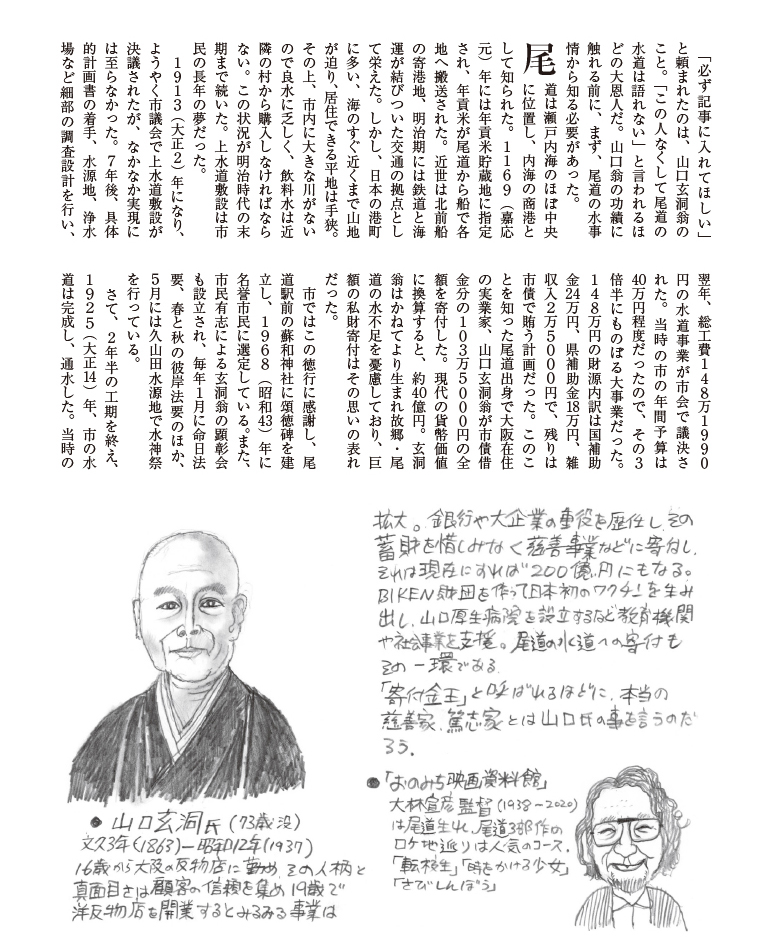 「必ず記事に入れてほしい」
と頼まれたのは、山口玄洞翁の
こと。「この人なくして尾道の
水道は語れない」と言われるほ
どの大恩人だ。山口翁の功績に
触れる前に、まず、尾道の水事
情から知る必要があった。
尾道は瀬戸内海のほぼ中央
に位置し、内海の商港と
して知られた。1169（嘉応
元）年には年貢米貯蔵地に指定
され、年貢米が尾道から船で各
地へ搬送された。近世は北前船
の寄港地、明治期には鉄道と海
運が結びついた交通の拠点とし
て栄えた。しかし、日本の港町
に多い、海のすぐ近くまで山地
が迫り、居住できる平地は手狭。
その上、市内に大きな川がない
ので良水に乏しく、飲料水は近
隣の村から購入しなければなら
ない。この状況が明治時代の末
期まで続いた。上水道敷設は市
民の長年の夢だった。
1913（大正2）年になり、
ようやく市議会で上水道敷設が
決議されたが、なかなか実現に
は至らなかった。7年後、具体
的計画書の着手、水源地、浄水
場など細部の調査設計を行い、
翌年、総工費148万1990
円の水道事業が市会で議決さ
れた。当時の市の年間予算は
40万円程度だったので、その3
倍半にものぼる大事業だった。
148万円の財源内訳は国補助
金24万円、県補助金18万円、雑
収入2万5000円で、残りは
市債で賄う計画だった。このこ
とを知った尾道出身で大阪在住
の実業家、山口玄洞翁が市債借
金分の103万5000円の全
額を寄付した。現代の貨幣価値
に換算すると、約40億円。玄洞
翁はかねてより生まれ故郷・尾
道の水不足を憂慮しており、巨
額の私財寄付はその思いの表れ
だった。
市ではこの徳行に感謝し、尾
道駅前の蘇和神社に頌徳碑を建
立し、1968（昭和43）年に
名誉市民に選定している。また、
市民有志による玄洞翁の顕彰会
も設立され、毎年1月に命日法
要、春と秋の彼岸法要のほか、
5月には久山田水源地で水神祭
を行っている。
さて、2年半の工期を終え、
1925（大正14）年、市の水
道は完成し、通水した。当時の
● 山口玄洞氏（73歳没）
文久3年（1863）ー昭和12年（1937）
16歳から大阪の反物店に勤め、その人柄と
真面目さは顧客の信頼を集め19歳で
洋反物店を開業するとみるみる事業は
拡大。銀行や大企業の重役を歴任し、その
蓄財を惜しみなく慈善事業などに寄付し、
それは現在にすれば200億円にもなる。
BIKEN財団を作って日本初のワクチンを生み
出し、山口厚生病院を設立するなど教育機関
や社会事業を支援。尾道の水道への寄付も
その一環である。
「寄付金王」と呼ばれるほどに、本当の
慈善家、篤志家とは山口氏の事を言うのだ
ろう。
●「おのみち映画資料館」
大林宣彦監督（1938－2020）
は尾道生れ、尾道3部作の
ロケ地巡りは人気のコース。
「転校生」「時をかける少女」
「さびしんぼう」